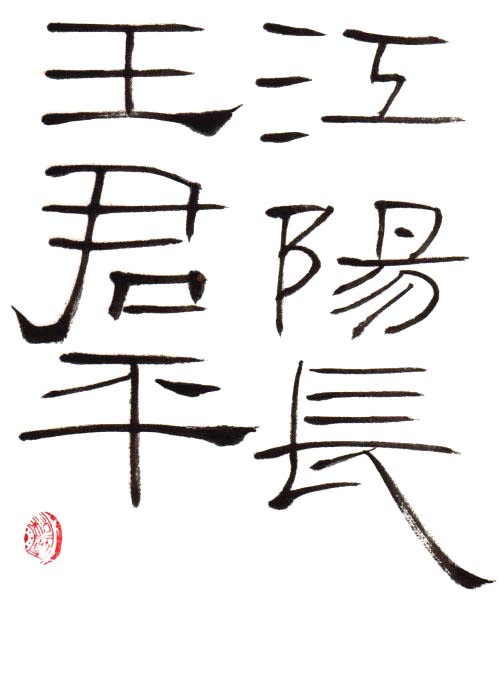 江陽長
王君平